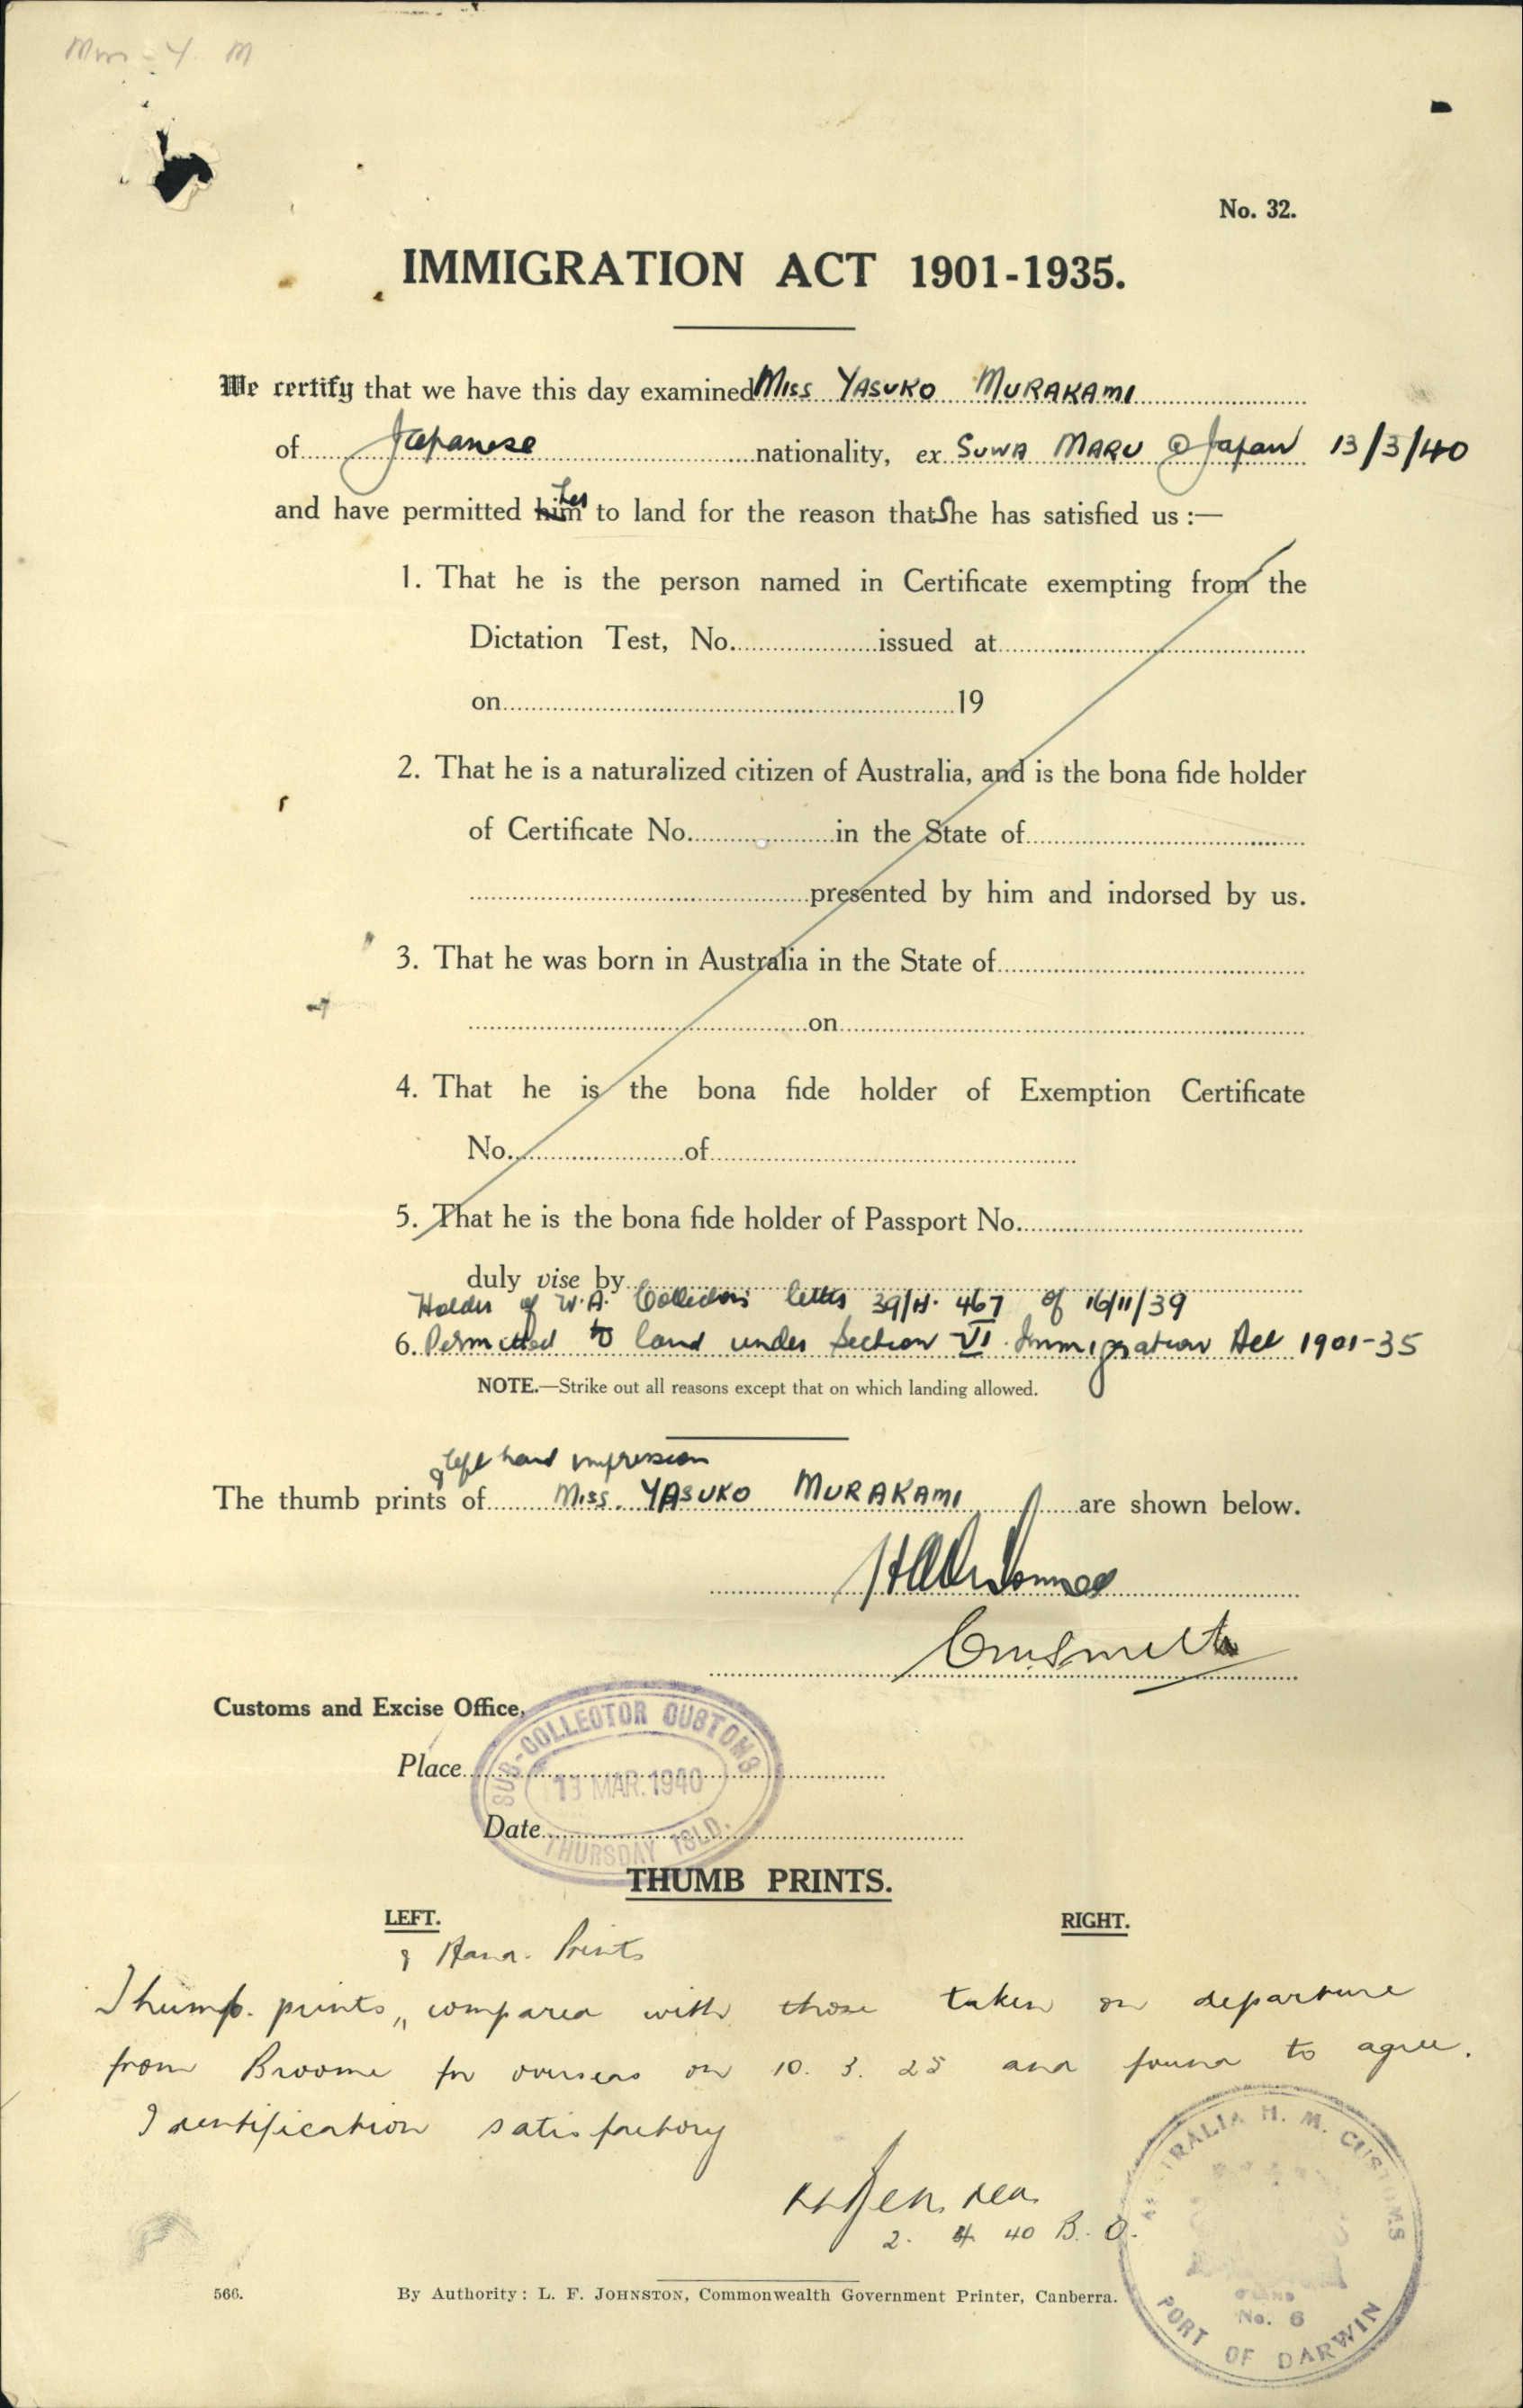 No. 32.
IMMIGRATION ACT 1901-1935.
We certify that we have this day examined Miss YASUKO MURAKAMI
of Japanese nationality, ex SUWA MARU @ Japan 13/3/40
and have permitted him her to land for the reason that She has satisfied us :—
1. That he is the person named in Certificate exempting from the
Dictation Test, No. issued at
on 19
2. That he is a naturalized citizen of Australia, and is the bona fide holder
of Certificate No. in the State of
presented by him and indorsed by us.
3. That he was born in Australia in the State of
on
4. That he is the bona fide holder of Exemption Certificate
No. of
5. That he is the bona fide holder of Passport No.
duly vise by
Holder of W.A. Collectors letter 39/H. 467 of 16/11/39
6. Permitted to land under Section VI Immigration Act 1901-35
NOTE.—Strike out all reasons except that on which landing allowed.
& left hand impression
The thumb prints of Miss. YASUKO MURAKAMI are shown below.
Customs and Excise Office,
SUB-COLLECTOR CUSTOMS
Place
13 MAR. 1940
Date
THURSDAY ISLD.
THUMB PRINTS.
LEFT. RIGHT.
& Hand Prints
Thump. prints,, compared with those taken on departure
from Broome for overseas on 10. 3. 25 and found to agree.
Identification satisfactory
2. 4. 40 B. O.
AUSTRALIA H. M. CUSTOMS
No. 6
PORT OF DARWIN
566. By Authority: L. F. JOHNSTON, Commonwealth Government Printer, Canberra.